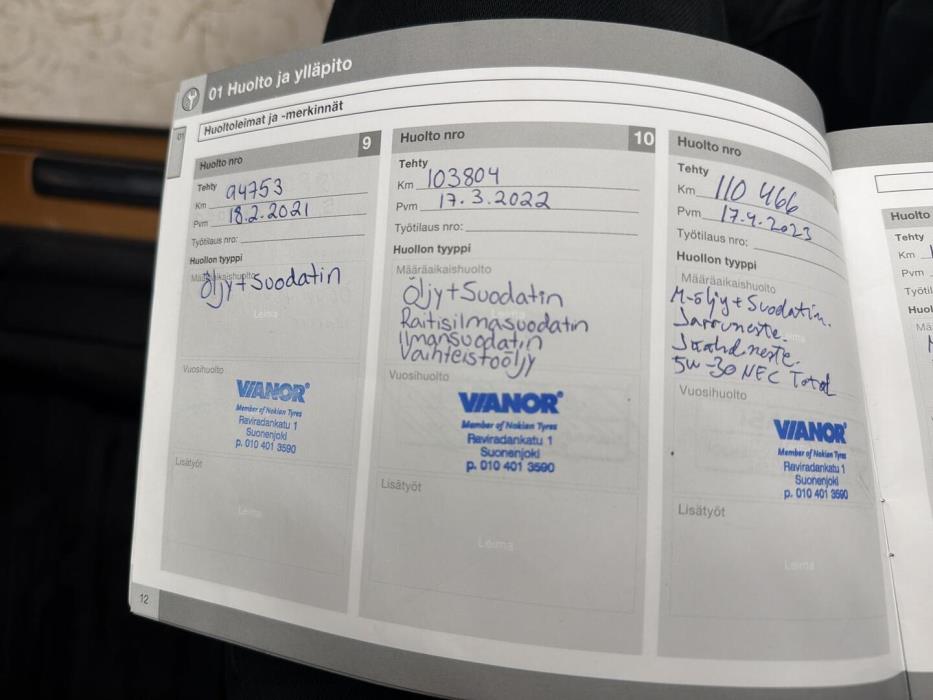 01 Huolto ja ylläpito
01
Huoltoleimat ja -merkinnät
Huolto nro 9
Tehty
Km 94753
Pvm 18.2.2021
Työtilaus nro:
Huollon tyyppi
Määräaikaishuolto
Öljy+Suodatin
Leima
Vuosihuolto
VIANOR
Member of Nokian Tyres
Raviradankatu 1
Suonenjoki
p. 010 401 3590
Lisätyöt
Leima
12
Huolto nro 10
Tehty
Km 103804
Pvm 17.3.2022
Työtilaus nro:
Huollon tyyppi
Määräaikaishuolto
Öljy+Suodatin
Raitisilmasuodatin
Ilmansuodatin
Vaihteistoöljy
Vuosihuolto
VIANOR
Member of Nokian Tyres
Raviradankatu 1
Suonenjoki
p. 010 401 3590
Lisätyöt
Leima
Huolto nro
Tehty
Km 110 466
Pvm 17.4.2023
Työtilaus nro:
Huollon tyyppi
Määräaikaishuolto
M-öljy+Suodatin.
Jarruneste.
Jäähd.neste.
5W-30 NEC Total
Vuosihuolto
VIANOR
Member of Nokian Tyres
Raviradankatu 1
Suonenjoki
p. 010 401 3590
Lisätyöt
Leima
Huolto
Tehty
Km
Pvm
Huollo